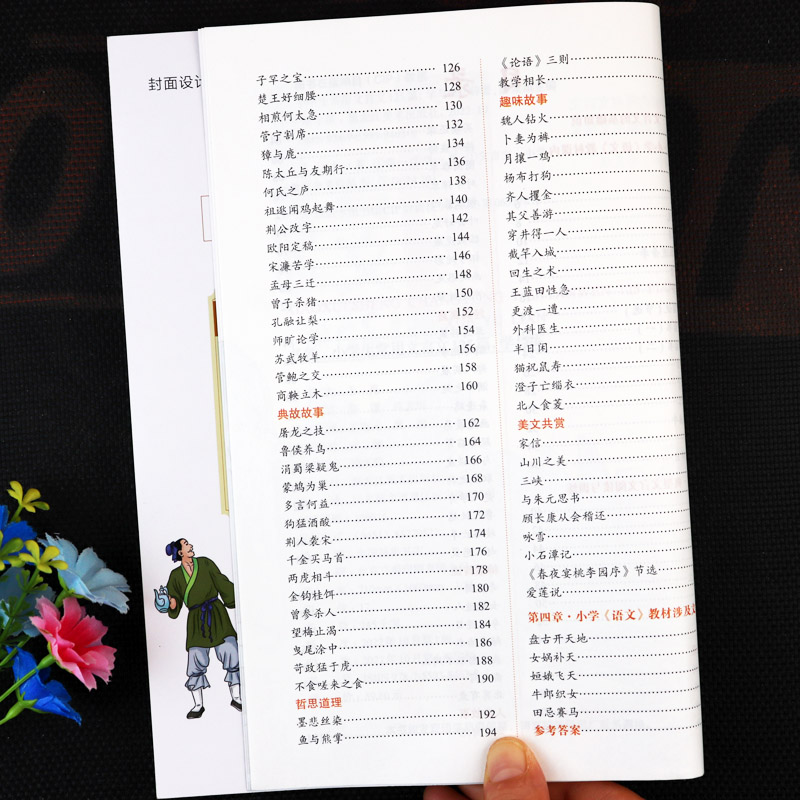 封面设计
子罕之宝 126
楚王好细腰 128
相煎何太急 130
管宁割席 132
獐与鹿 134
陈太丘与友期行 136
何氏之庐 138
祖逖闻鸡起舞 140
荆公改字 142
欧阳定稿 144
宋濂苦学 146
孟母三迁 148
曾子杀猪 150
孔融让梨 152
师旷论学 154
苏武牧羊 156
管鲍之交 158
商鞅立木 160
典故故事
屠龙之技 162
鲁侯养鸟 164
涓蜀梁疑鬼 166
蒙鸠为巢 168
多言何益 170
狗猛酒酸 172
荆人袭宋 174
千金买马首 176
两虎相斗 178
金钩桂饵 180
曾参杀人 182
望梅止渴 184
曳尾涂中 186
苛政猛于虎 188
不食嗟来之食 190
哲思道理
墨悲丝染 192
鱼与熊掌 194
《论语》三则
教学相长
趣味故事
魏人钻火
卜妻为裤
月攘一鸡
杨布打狗
齐人攫金
其父善游
穿井得一人
截竿入城
回生之术
王蓝田性急
更渡一遭
外科医生
半日闲
猫祝鼠寿
澄子亡缁衣
北人食菱
美文共赏
家信
山川之美
三峡
与朱元思书
顾长康从会稽还
咏雪
小石潭记
《春夜宴桃李园序》节选
爱莲说
第四章·小学《语文》教材涉及
盘古开天地
女娲补天
姮娥飞天
牛郎织女
田忌赛马
参考答案